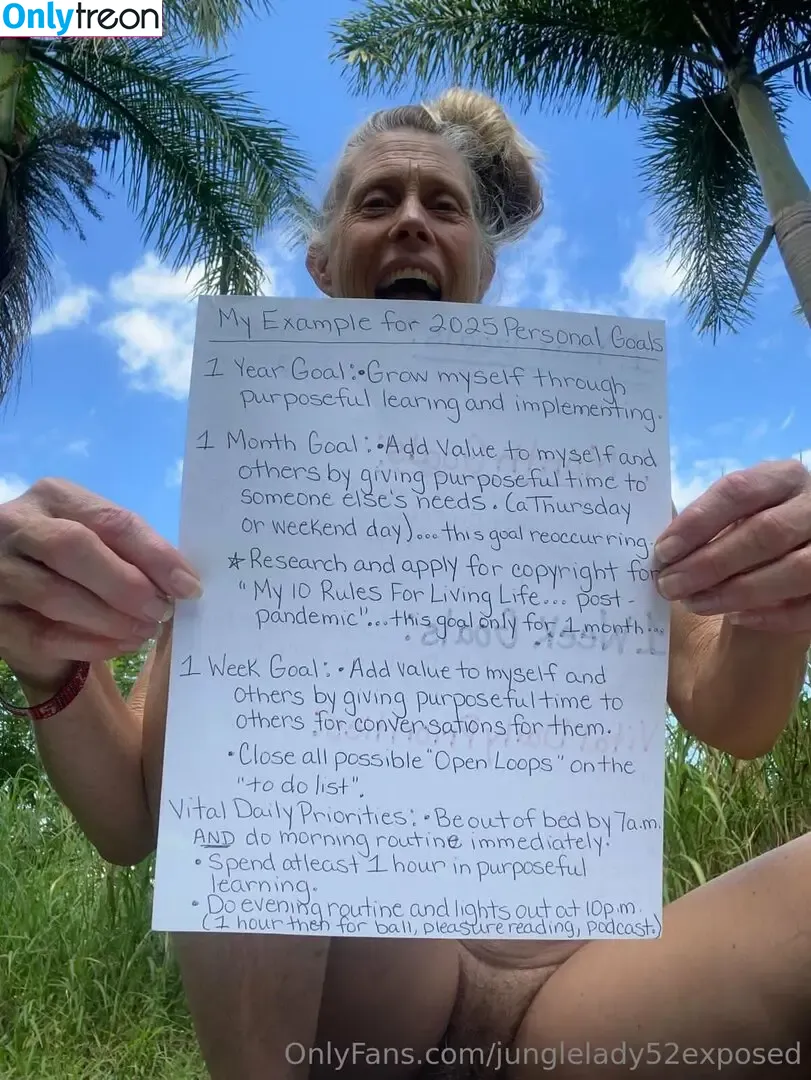 Onlytreon
My Example for 2025 Personal Goals
1 Year Goal: • Grow myself through
purposeful learing and implementing.
1 Month Goal: • Add Value to myself and
others by giving purposeful time to
someone else's needs. (a Thursday
or weekend day)... this goal reoccurring.
☆ Research and apply for copyright for
"My 10 Rules For Living Life... post-
pandemic"... this goal only for 1 month...
1 Week Goal: • Add value to myself and
others by giving purposeful time to
others for conversations for them.
• Close all possible "Open Loops" on the
"to do list".
Vital Daily Priorities: • Be out of bed by 7a.m.
AND do morning routine immediately.
• Spend atleast 1 hour in purposeful
learning.
• Do evening routine and lights out at 10p.m.
(1 hour then for ball, pleasure reading, podcast.)
OnlyFans.com/junglelady52exposed